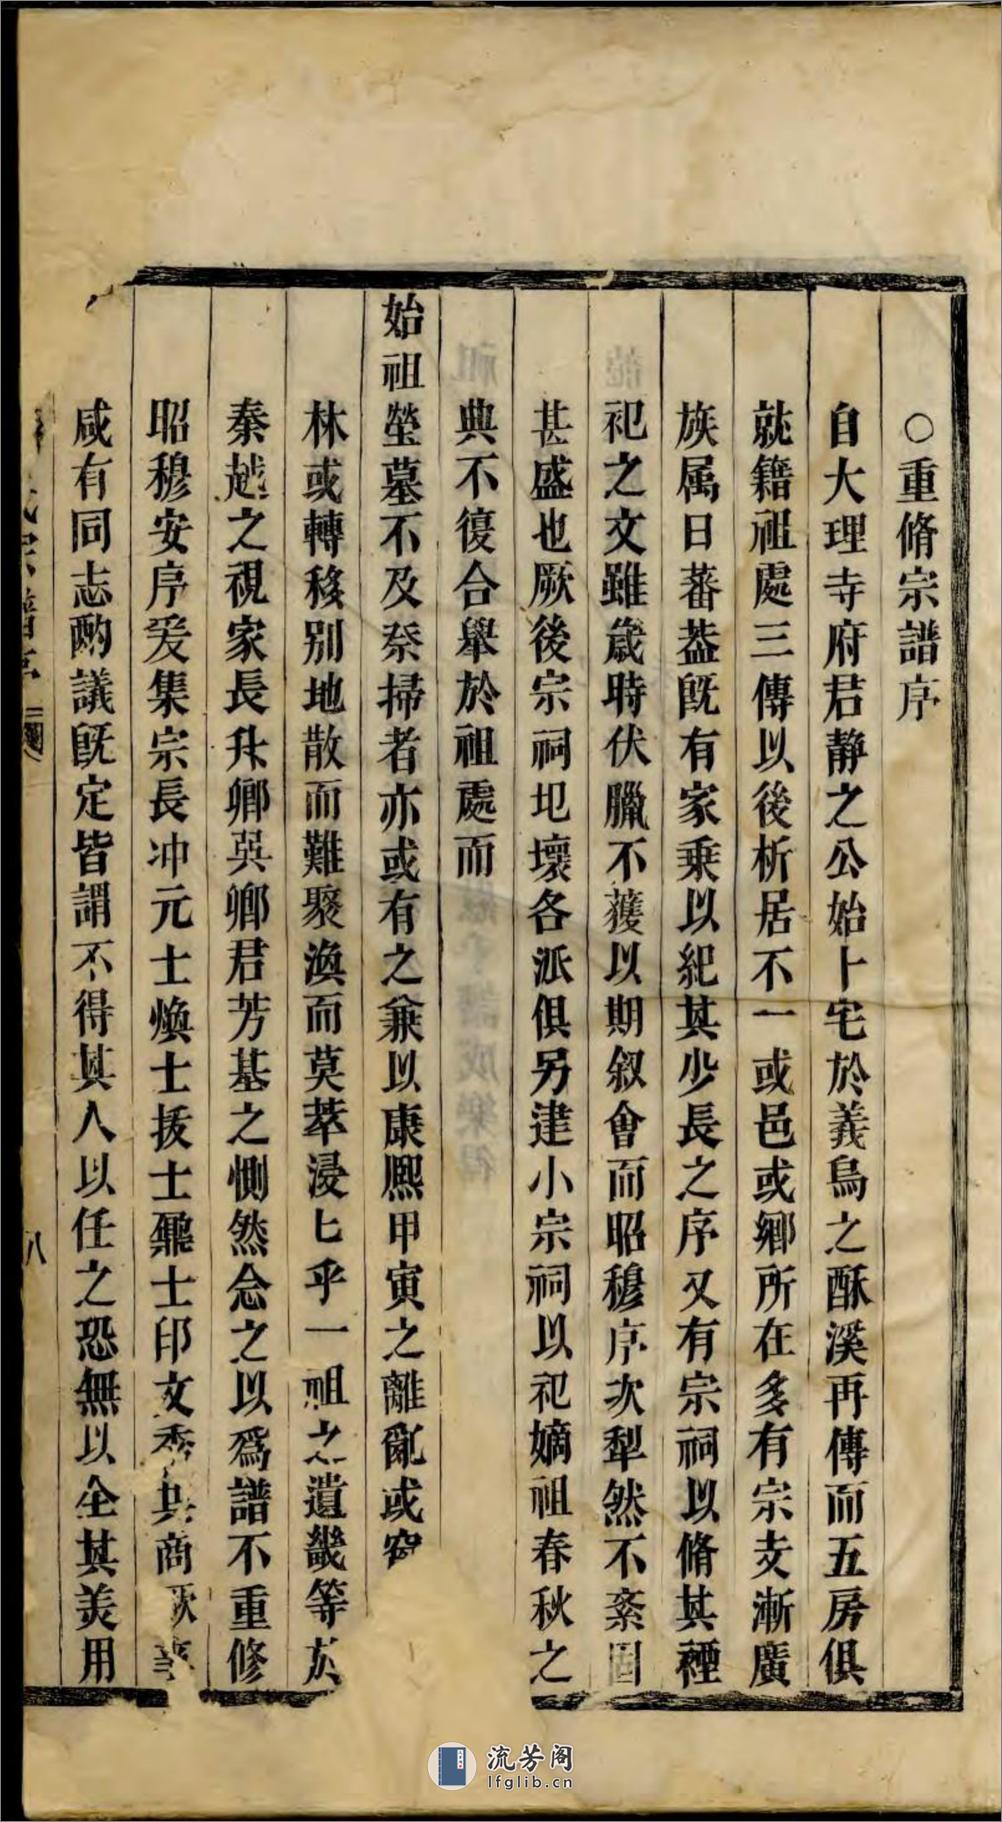 ○重脩宗譜序
自大理寺府君静之公始卜宅於義烏之酥溪再傳而五房俱
就籍祖處三傳以後析居不一或邑或鄉所在多有宗支漸廣
族属日蕃葢旣有家乗以紀其少長之序又有宗祠以脩其禋
祀之文雖歲時伏臘不獲以期叙會而昭穆序次犁然不紊固
甚盛也厥後宗祠圯壞各派俱另建小宗祠以祀嫡祖春秋之
典不復合舉於祖處而
始祖塋墓不及祭掃者亦或有之兼以康熙甲寅之離亂或竄
林或轉移别地散而難聚渙而莫萃浸匕乎一祖之遺畿等於
秦越之視家長升卿吳卿君芳基之惻然念之以爲譜不重修
昭穆安序爰集宗長冲元士煥士拔士鼐士印文秀共商厥
咸有同志酌議旣定皆謂不得其人以任之恐無以全其美用
宗譜序
八
流芳阁
lfglib.cn